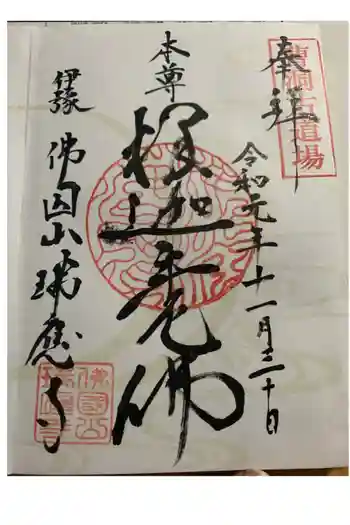 奉拝
曹洞古道場
令和元年十一月三十日
本尊
釋迦牟尼佛
伊豫
佛国山瑞應寺